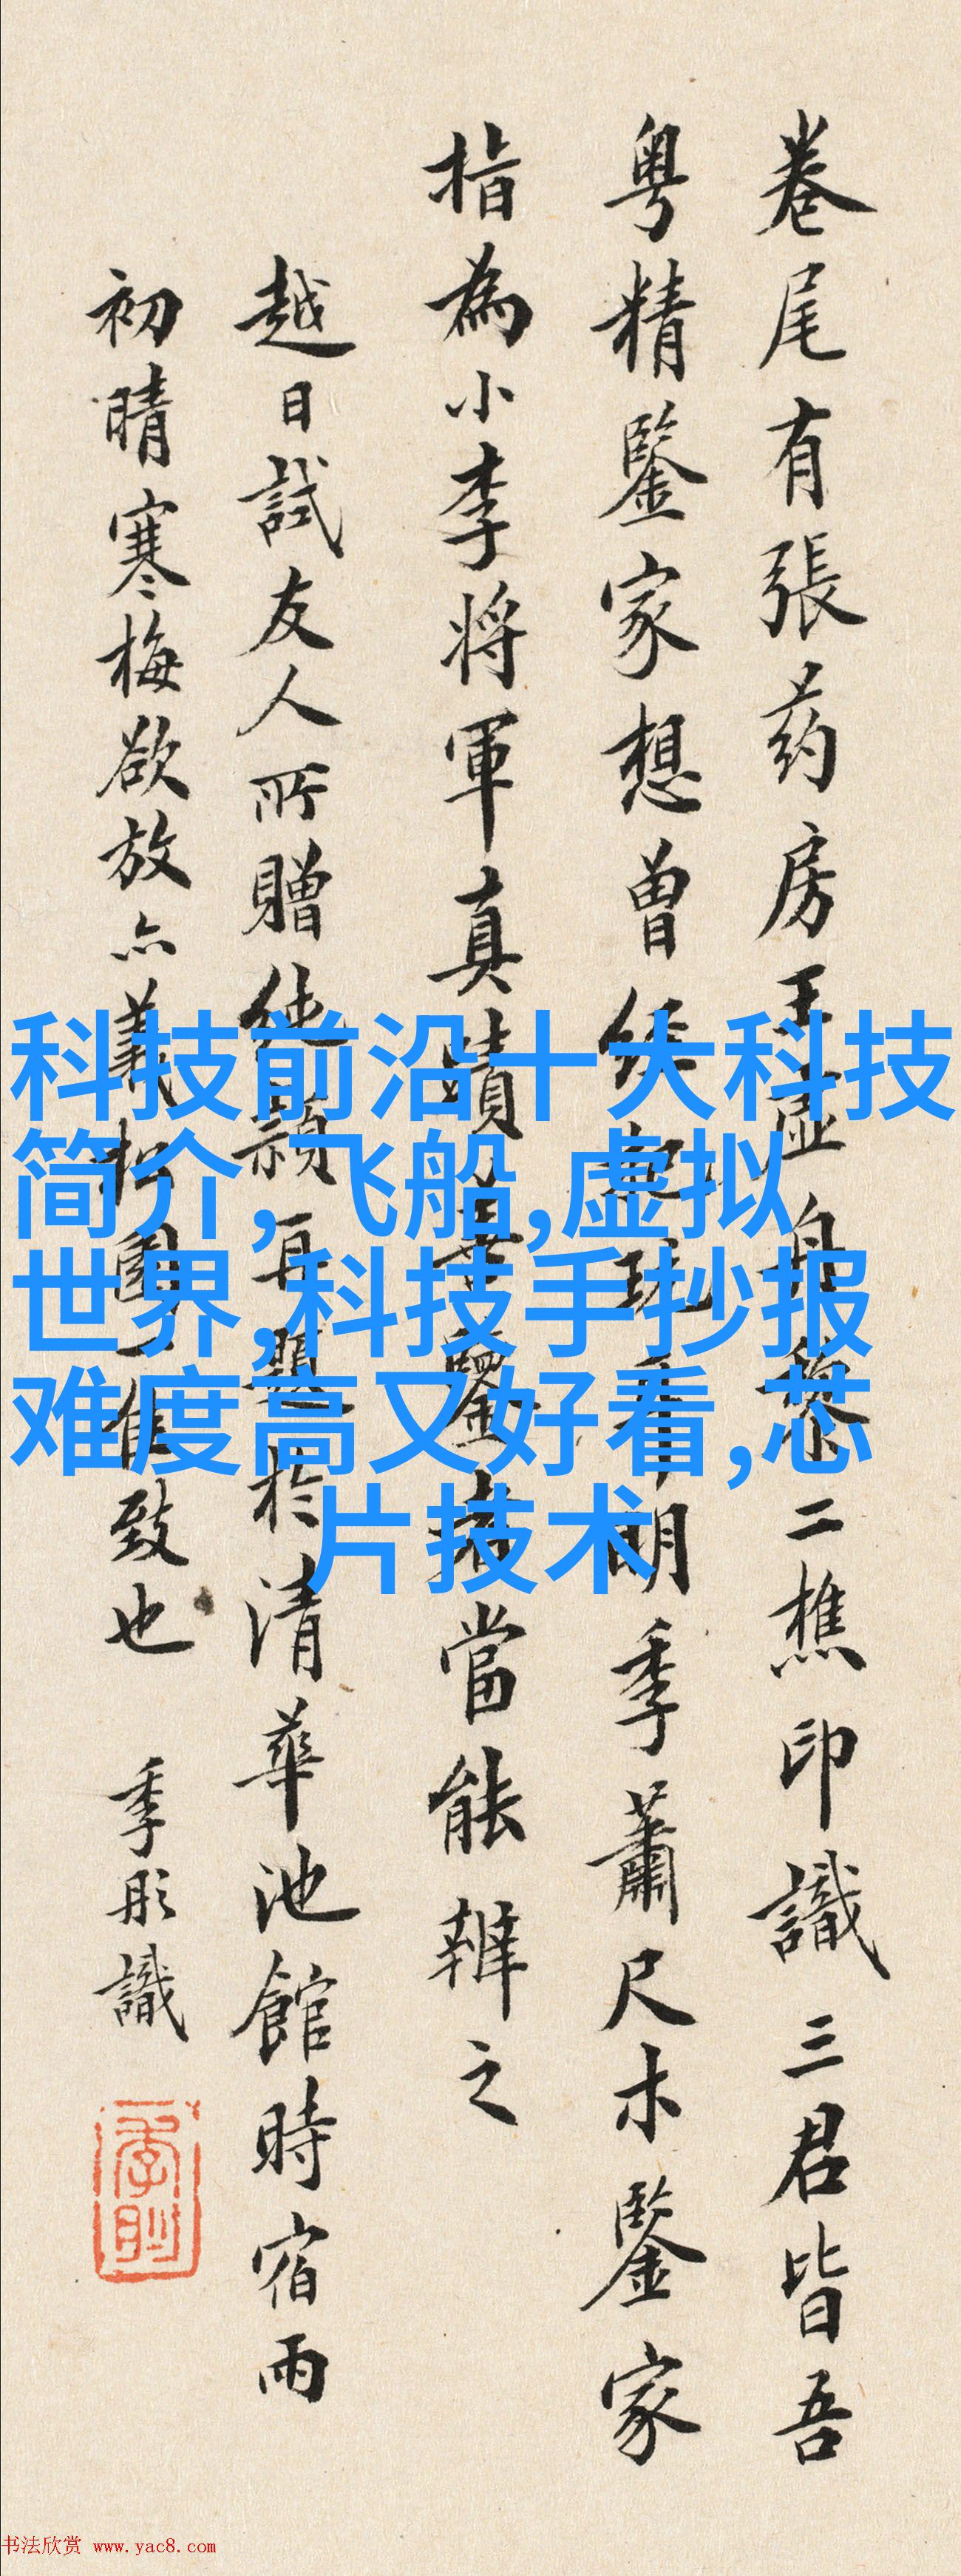 卷尾有張药房王虛黎二樵印識三君皆吾
粤精鑒家想曾明季蕭尺木鑒家
指為小李將軍真蹟鑒者當能辨之
越日試友人所贈純穎再題於清華池館時宿雨
初晴寒梅欲放亦義園一佳致也 季彤識
科技前沿十大科技
简介,飞船,虚拟
世界,科技手抄报
难度高又好看,芯
片技术
书法欣赏 www.yac8.com